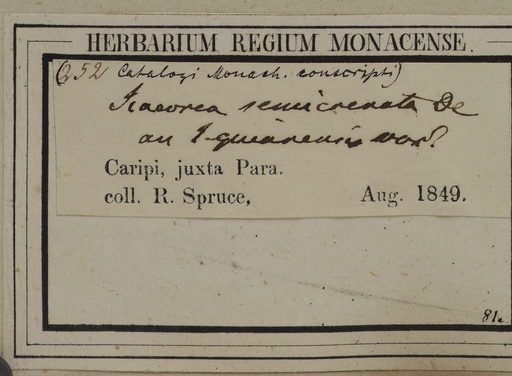 HERBARIUM REGIUM MONACENSE.
(252 Catalogi Monach. conscripti)
Icacorea semicrenata De
an I. guianensis var?
Caripi, juxta Para.
coll. R. Spruce, Aug. 1849.
81.